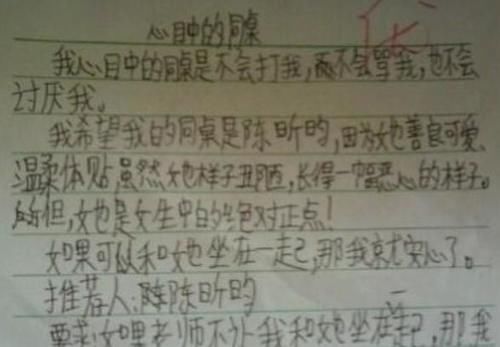 心目中的同桌
我心目中的同桌是不会打我,不会骂我,也不会
讨厌我。
我希望我的同桌是陈昕昀,因为她善良可爱、
温柔体贴,虽然她样子丑陋,长得一幅恶心的样子。
但,她也是女生中的绝对正点!
如果可以和她坐在一起,那我就安心了。
推荐人:陈昕昀
要求:如果老师不让我和她坐在一起,那我